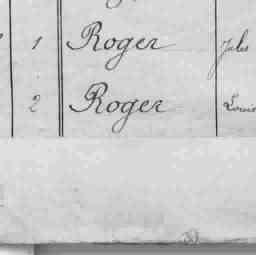 1 Roger Jules
2 Roger Louis